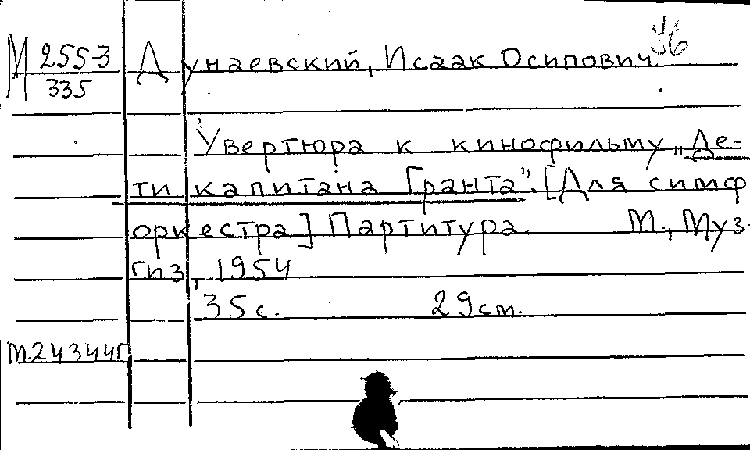 36
М 255-3 Дунаевский, Исаак Осипович.
335
Увертюра к кинофильму „Де-
ти капитана Гранта". [Для симф
оркестра] Партитура. М., Муз-
гиз, 1954
35с. 29см.
М.24344П